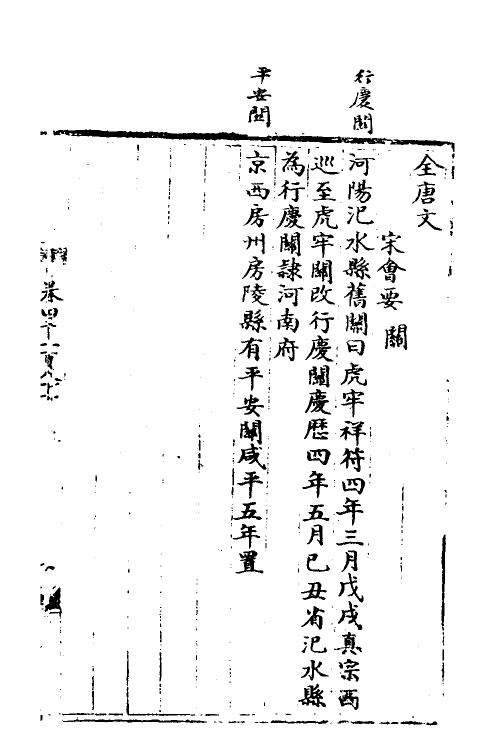 行慶關
平安關
全唐文
宋會要 關
河陽汜水縣舊關曰虎牢祥符四年三月戊戌真宗西
巡至虎牢關改行慶關慶歷四年五月已丑省汜水縣
為行慶關隷河南府
京西房州房陵縣有平安關咸平五年置